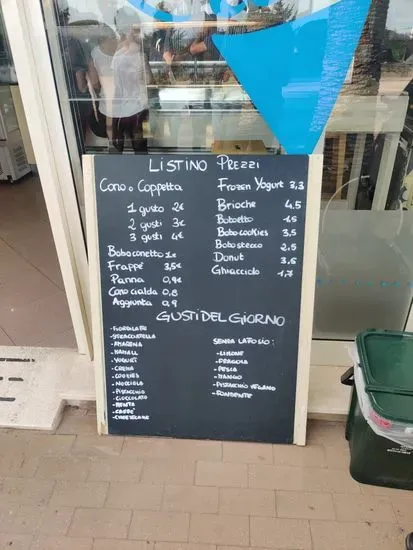 Listino Prezzi
Cono o Coppetta
1 gusto 2€
2 gusti 3€
3 gusti 4€
Boboconetto 1€
Frappè 3,5€
Panna 0,9€
Cono cialda 0,8
Aggiunta 0,9
Frozen Yogurt 3,3
Brioche 4,5
Bobotto 1,5
Bobocookies 3,5
Bobostecco 2,5
Donut 3,5
Ghiacciolo 1,7
GUSTI DEL GIORNO
-FIORDILATTE
-STRACCIATELLA
-AMARENA
-YOGURT
-CREMA
-COOKIES
-NOCCIOLA
-PISTACCHIO
-CIOCCOLATO
-MENTA
-CAFFE'
-CHEESECAKE
SENZA LATTOSIO:
-LIMONE
-FRAGOLA
-PESCA
-MANGO
-PISTACCHIO VEGANO
-FONDENTE